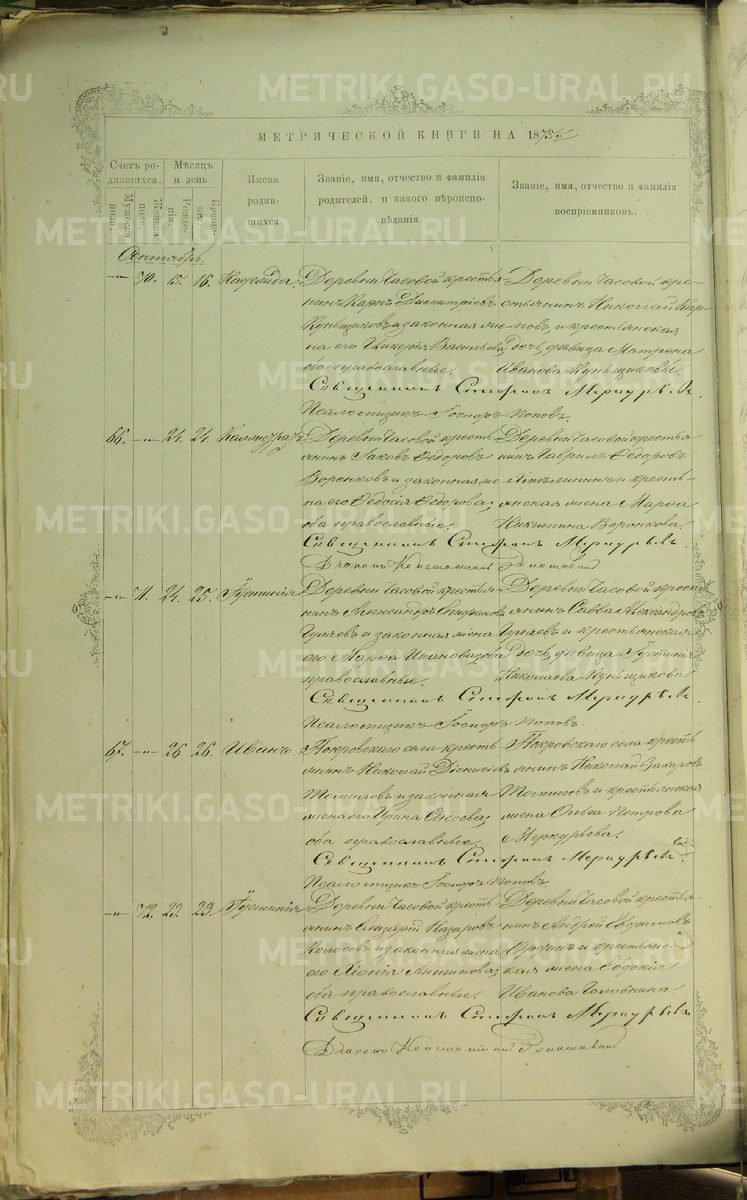 МЕТРИЧЕСКОЙ КНИГИ НА 1875й
Счетъ родившихся.
Мужеска пола.
Женска пола.
Мѣсяцъ и день
Рожденія.
Крещенія.
Имена родившихся.
Званіе, имя, отчество и фамилія родителей, и какого вѣроисповѣданія.
Званіе, имя, отчество и фамилія воспріемниковъ.
Сентябрь.
— 70. 15. 16. Надежда.
Деревни Часовой крестья-
нинъ Карпъ Димитріевъ
Куньщиковъ и законная же-
на его Гликерія Васильева,
оба православные.
Деревни Часовой кре-
стьянинъ Николай Кар-
повъ, и крестьянская
дочь, дѣвица Матрена
Иванова Куньщиковы.
Священникъ Стефанъ Меркурьевъ.
Псаломщикъ Іосифъ Поповъ.
66. — 24. 24.
Деревни Часовой кресть-
янинъ Іаковъ Ѳедоровъ
Воронковъ и законная же-
на его Ѳедосія Ѳедорова,
оба православные.
Деревни Часовой крестья-
нинъ Гавріилъ Ѳедоровъ
и кресть-
янская жена Марѳа
Никитина Воронкова.
Священникъ Стефанъ Меркурьевъ.
Діаконъ Константинъ
— 71. 24. 25. Іустинія
Деревни Часовой крестья-
нинъ Александръ
и законная жена
его Марѳа Иванова, оба
православные.
Деревни Часовой кресть-
янинъ Савва Александровъ
и крестьянская
дочь, дѣвица Іустинія
Николаева Куньщикова.
Священникъ Стефанъ Меркурьевъ.
Псаломщикъ Іосифъ Поповъ.
67. — 26. 26. Иванъ.
Покровскаго села кресть-
янинъ Николай Діонисіевъ
и законная
жена его Ирина
оба православные.
Покровскаго села кресть-
янинъ Николай Захаровъ
и крестьянская
жена Ольга Петрова
Меркурьева.
Священникъ Стефанъ Меркурьевъ.
Псаломщикъ Іосифъ Поповъ.
— 72. 29. 29. Іустинія
Деревни Часовой кресть-
янинъ Елизарій Назаровъ
Колобовъ и законная жена
его Антипова,
оба православные.
Деревни Часовой крестья-
нинъ Андрей Евфимовъ
и крестьянс-
кая жена Евдокія
Иванова Головнина.
Священникъ Стефанъ Меркурьевъ
Діаконъ Константинъ
METRIKI.GASO-URAL.RU